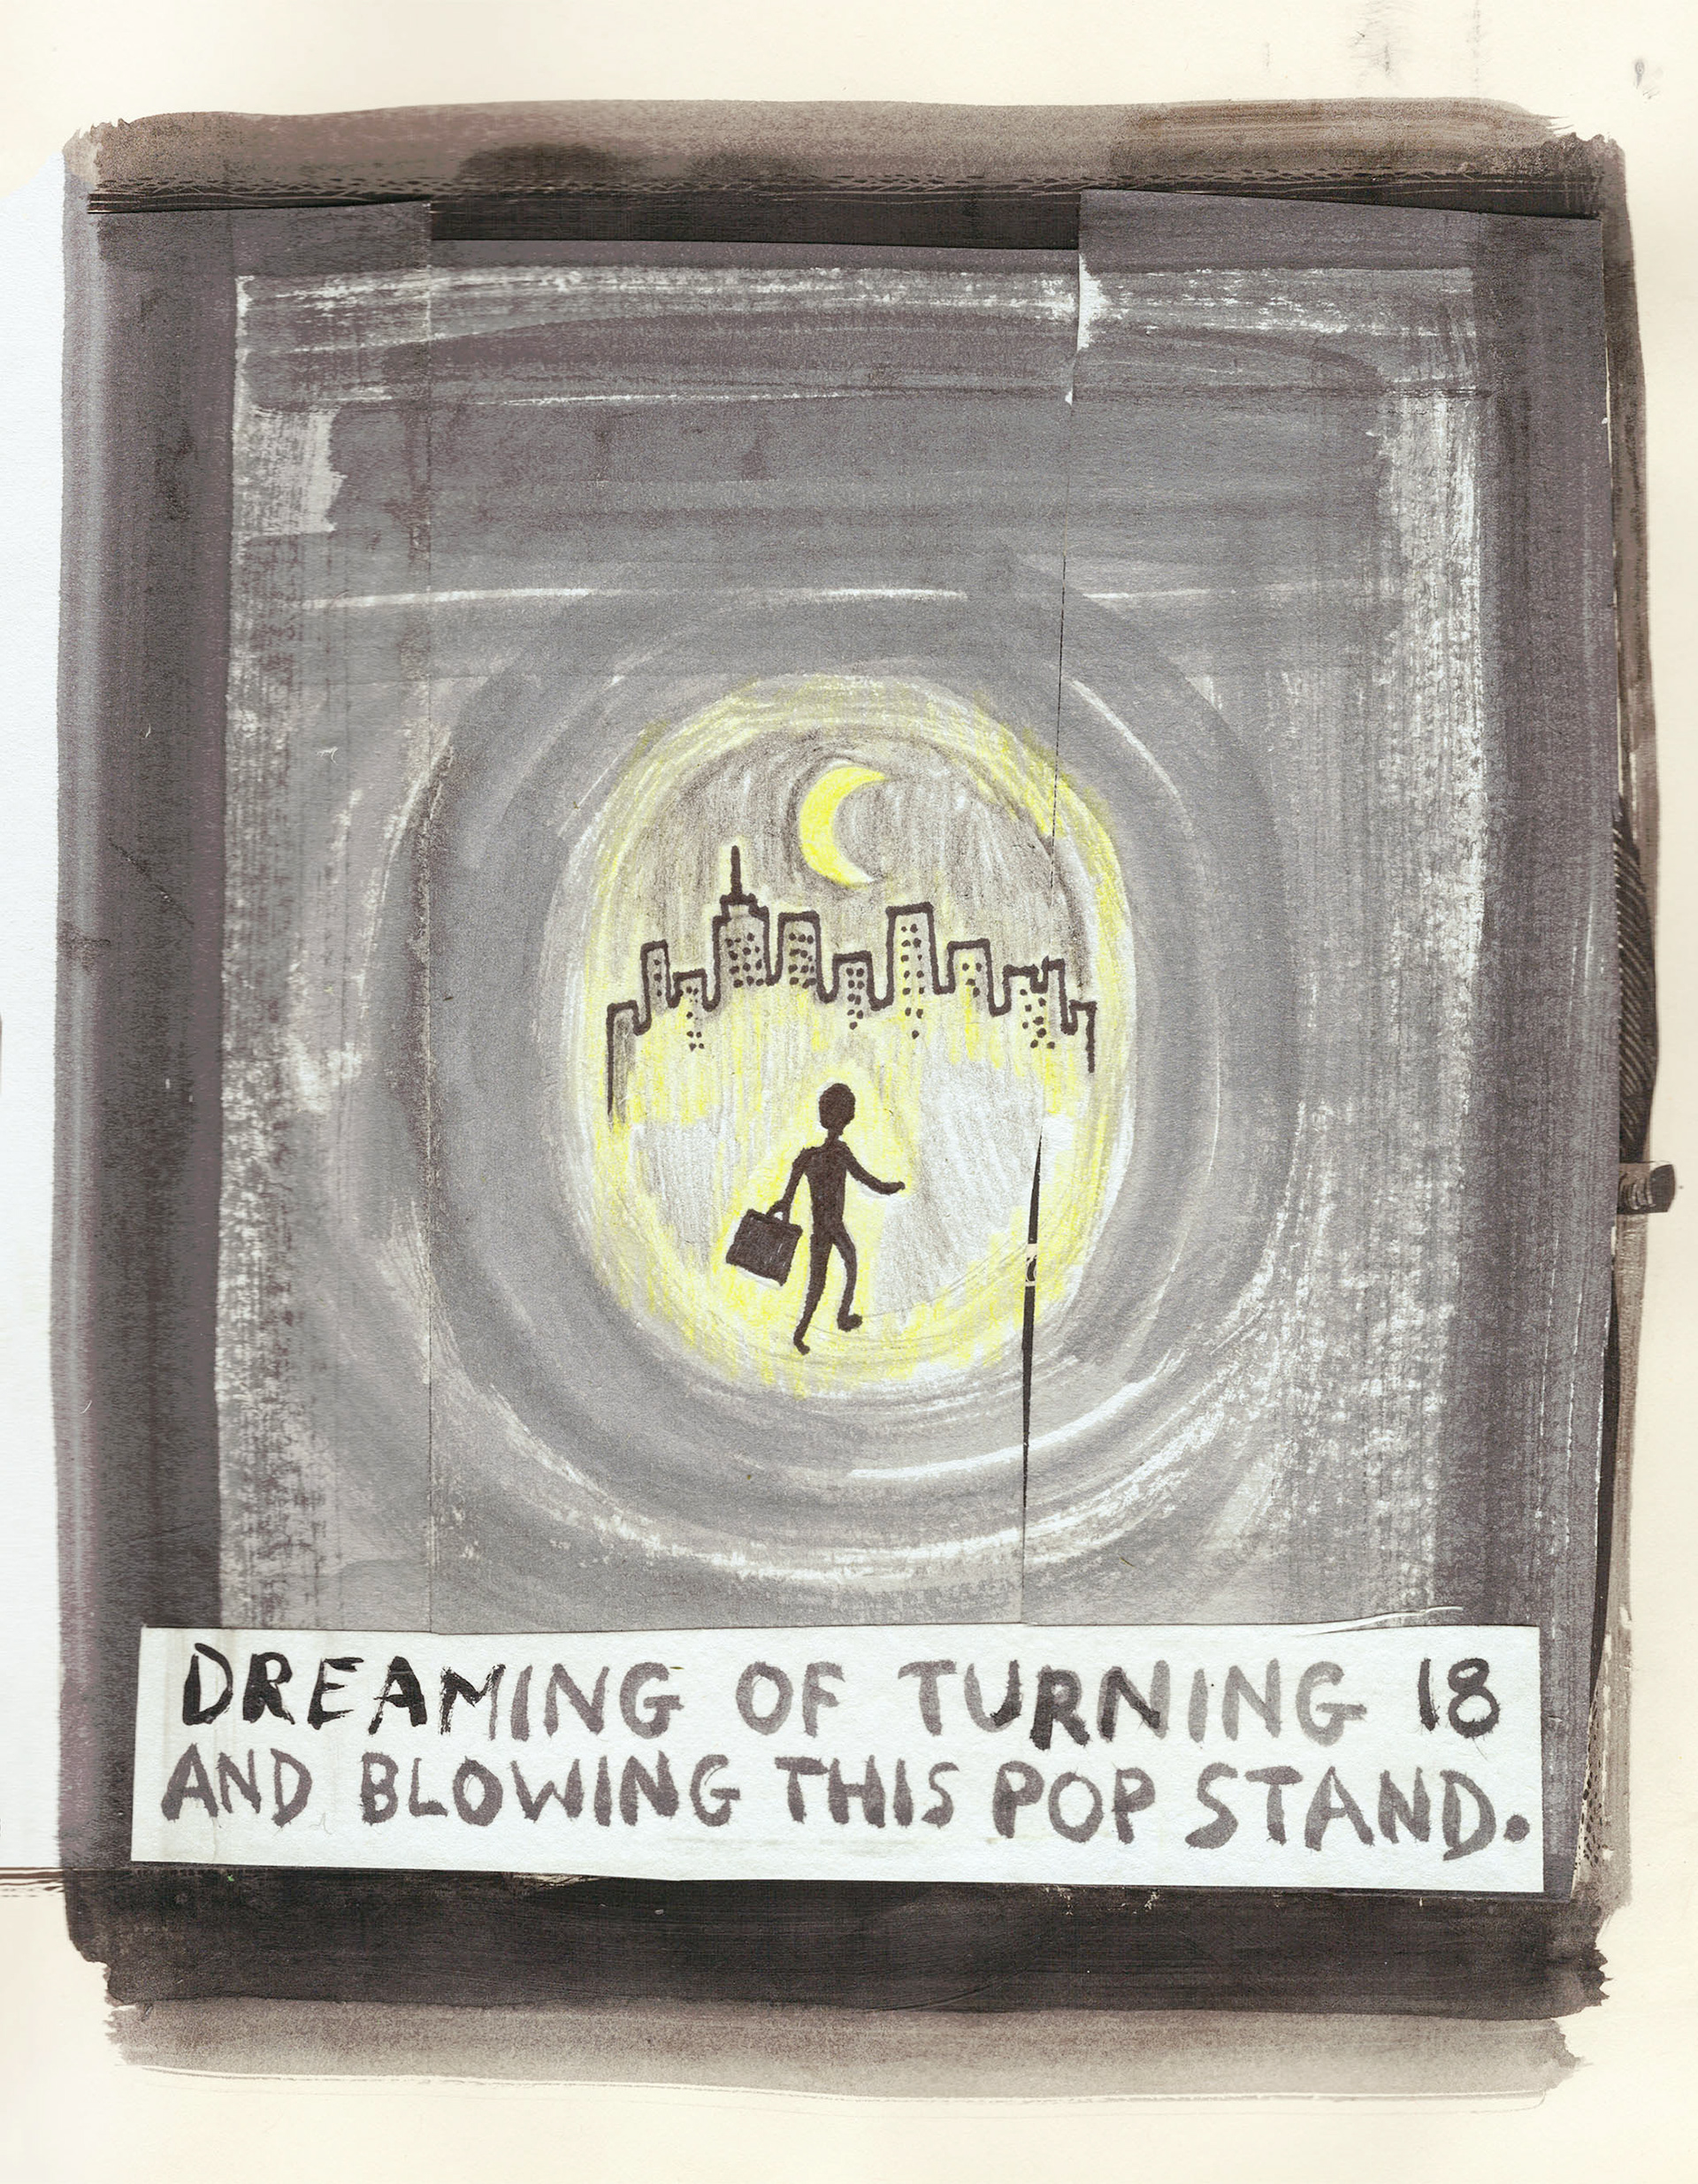 DREAMING OF TURNING 18
AND BLOWING THIS POP STAND.